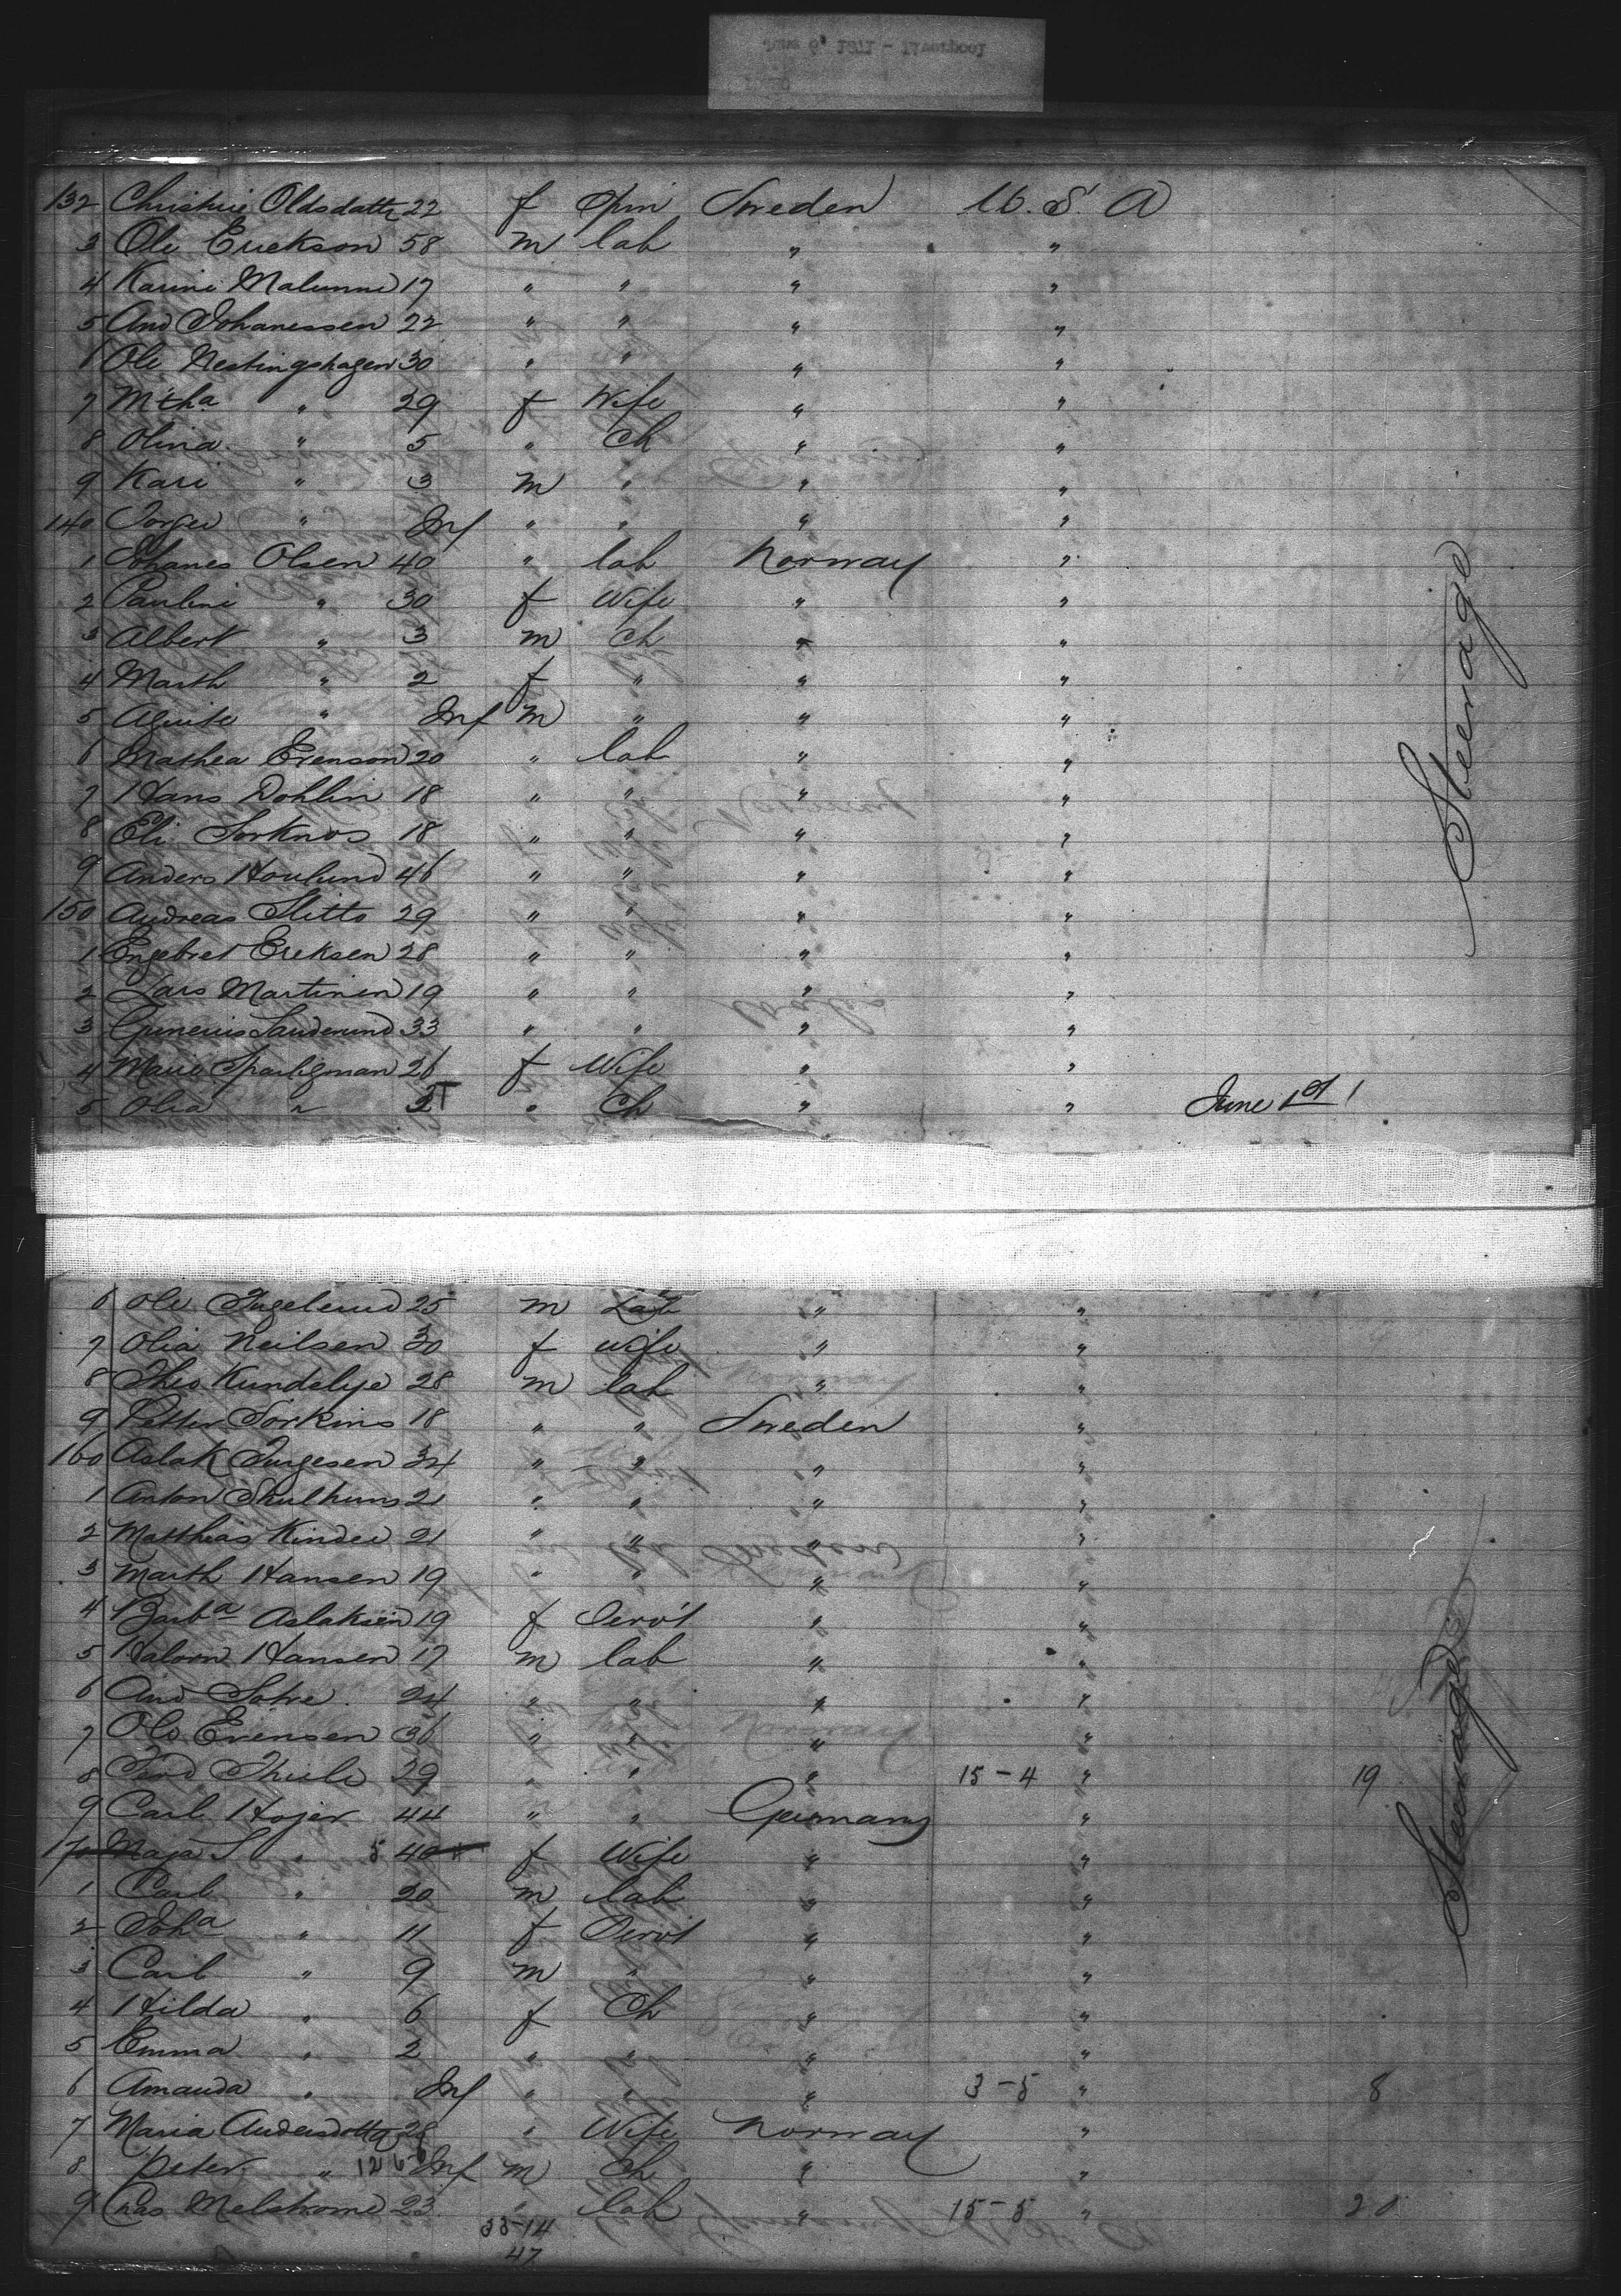 June 6, 1871 - Liverpool
132 Christine Oldsdattr 22 f Spin Sweden U. S A
3 Ole Erickson 58 m lab " "
4 Karine Malumu 17 " " " "
5 And Johanessen 22 " " " "
6 Ole Nestingshagen 30 " " " "
7 Mtha " 29 f Wife " "
8 Olina " 5 " Ch " "
9 Kari " 3 m " " "
140 Torger " Inf " " " "
1 Johanes Olsen 40 " lab Norway "
2 Pauline " 30 f Wife " "
3 Albert " 3 m Ch " "
4 Marth " 2 f " " "
5 " Inf m " " "
6 Mathea Evenson 20 " lab " "
7 Hans Dohlin 18 " " " "
8 Eli Sorknos 18 " " " "
9 Anders Houlund 46 " " " "
150 Andreas Slitto 29 " " " "
1 Engebret Ereksen 28 " " " "
2 Lars Martinen 19 " " " "
3 Gunerius 33 " " " "
4 Marie 26 f Wife " "
5 Olia " " Ch " " June 1st
Steerage
6 Ole 25 m Lab " "
7 Olia Neilsen 30 f wife " "
8 Theo Kundelye 28 m lab " "
9 Petter Sorkins 18 " " Sweden "
160 Aslak Jurgesen 34 " " " "
1 Anton 21 " " " "
2 Matthias Kindee 21 " " " "
3 Marth Hansen 19 " " " "
4 Barba Aslaksen 19 f Serv't " "
5 Halvorn Hansen 17 m lab " "
6 And Sotre 24 " " " "
7 Ole Evensen 36 " " " "
8 Ferd Thiele 29 " " " 15-4 " 19
9 Carl Hojer 44 " " Germany "
170 Maja S " 5 40 f Wife " "
1 Carl " 20 m lab " "
2 Joha " 11 f Servt " "
3 Carl " 9 m " " "
4 Hilda " 6 f Ch " "
5 Emma " 2 " " " "
6 Amanda " Inf " " " 3-5 " 8
7 Maria Andersdottr 28 " Wife Norway "
8 Peter " 126 Inf m Ch " "
9 Chas Melstrome 23 " lab " 15-5 " 20
33-14
47
Steerage